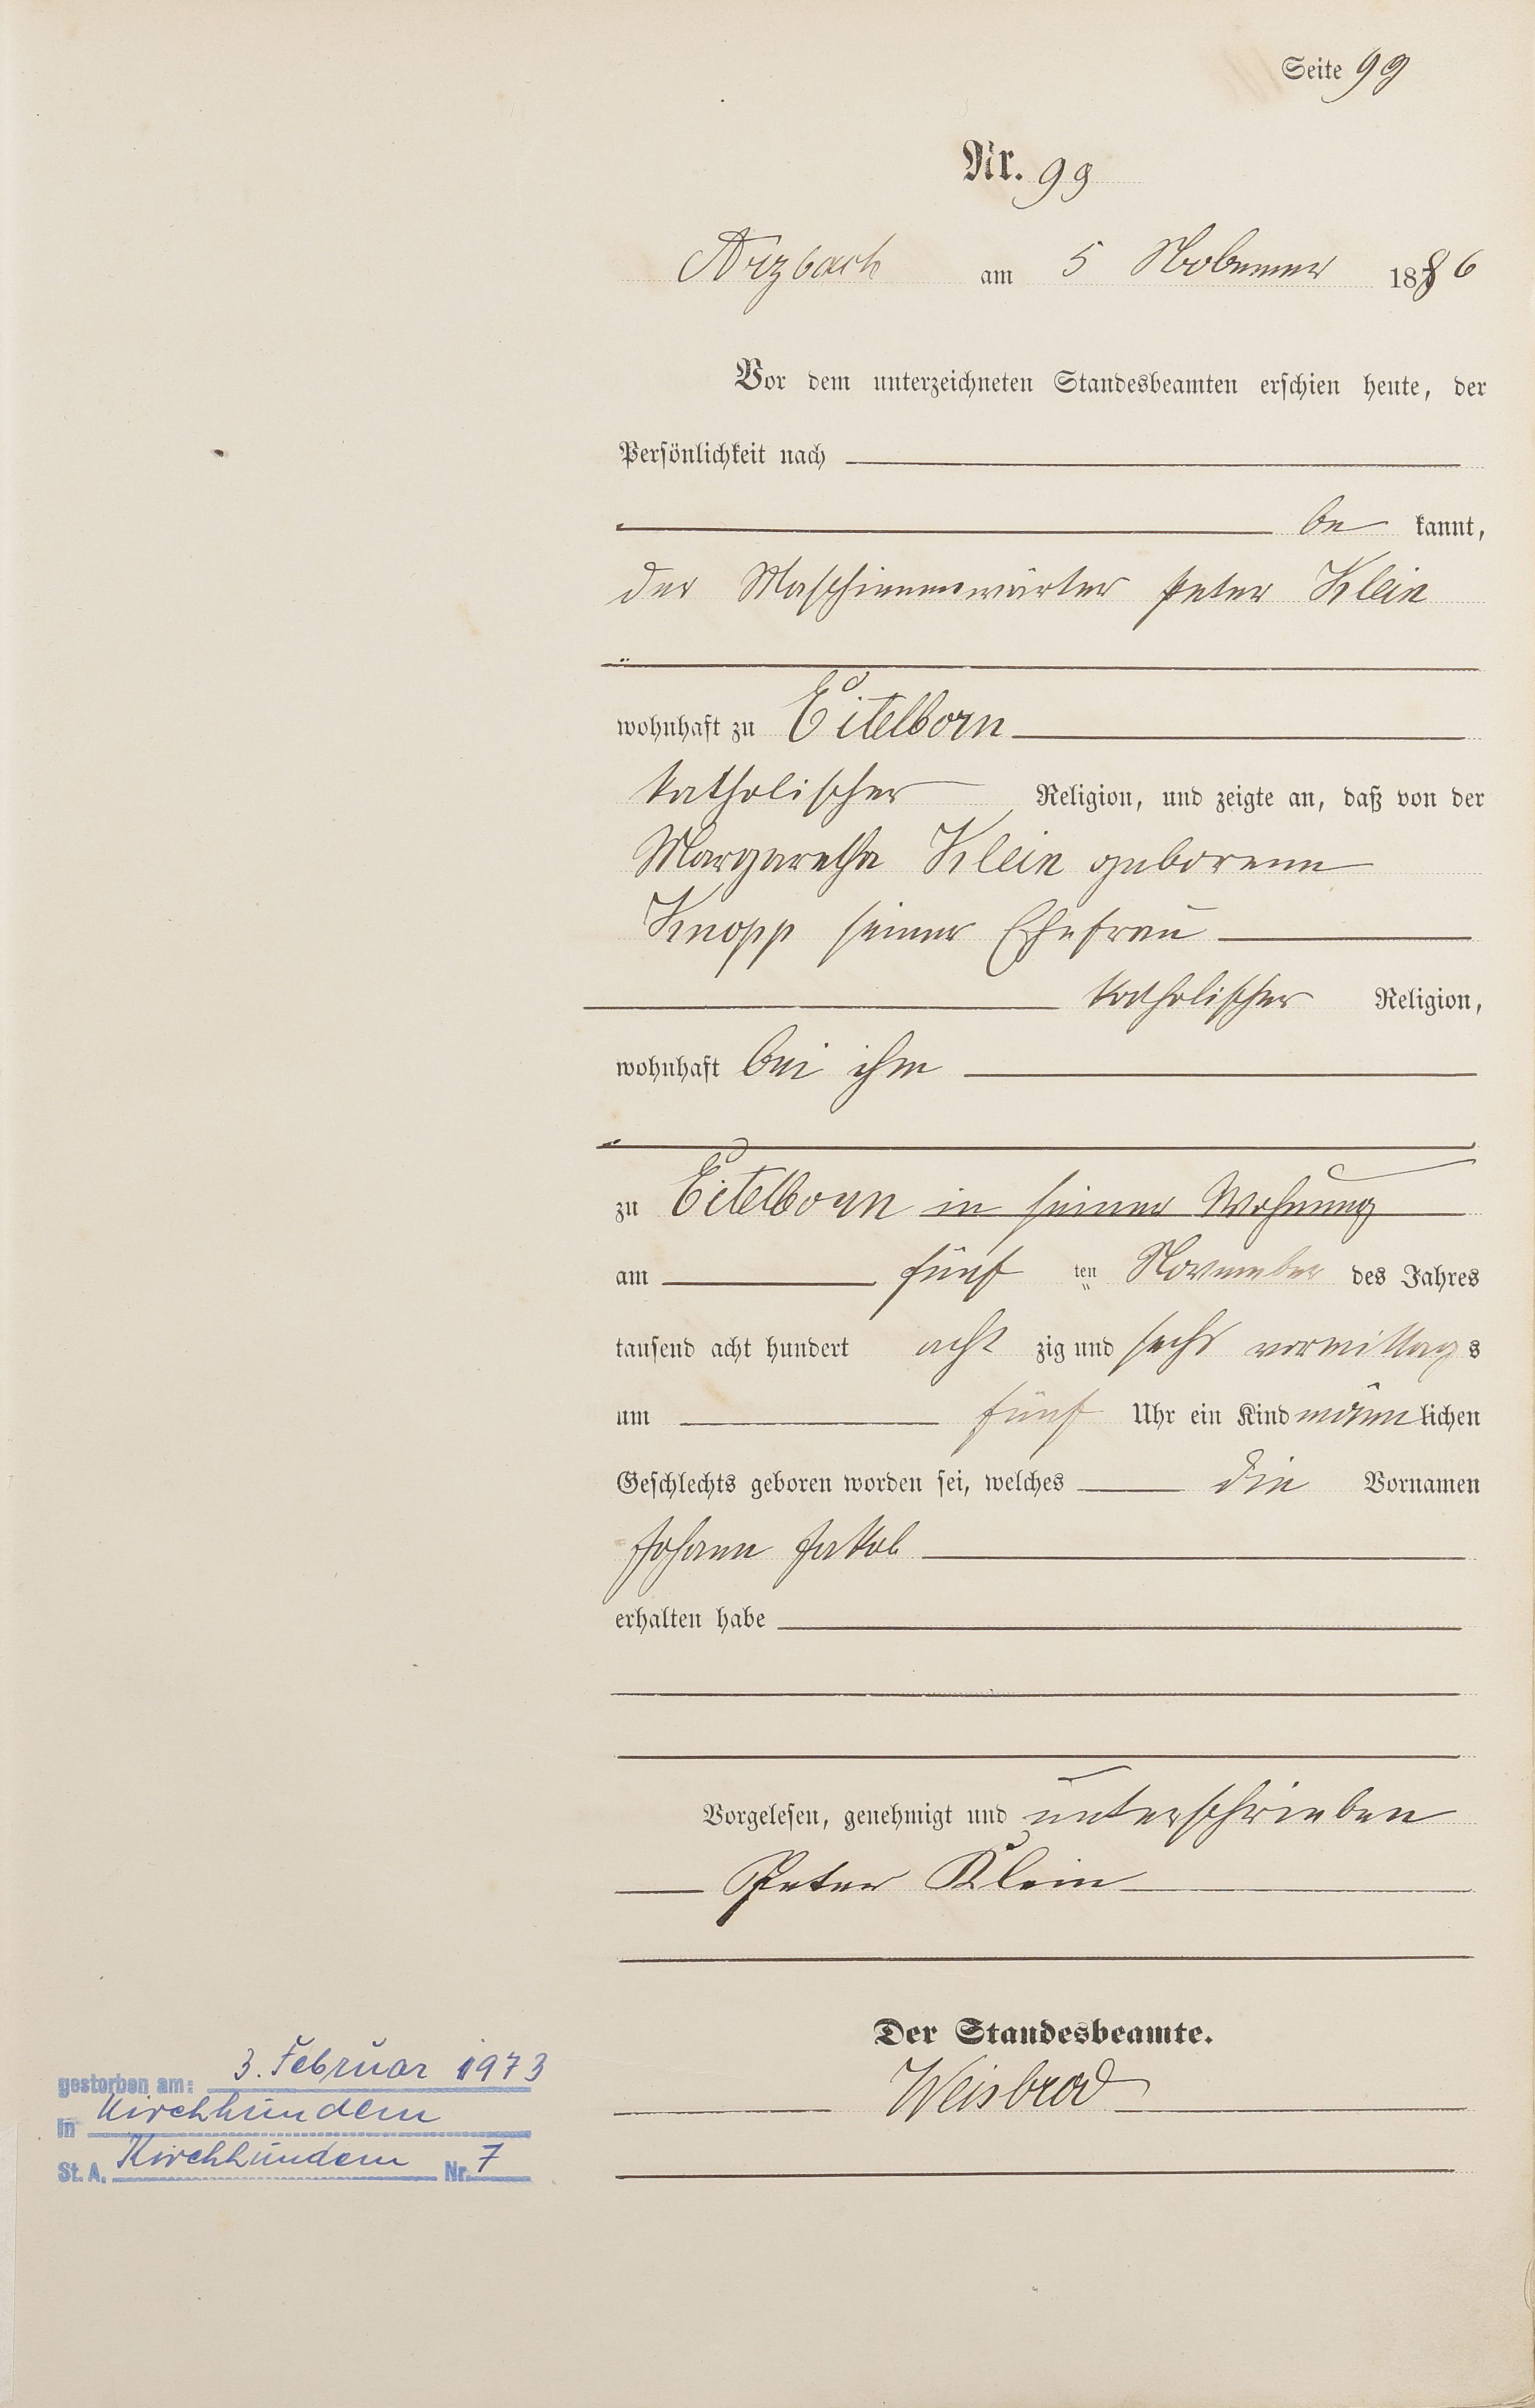 Seite 99
Nr. 99
Arzbach am 5 November 1886
Vor dem unterzeichneten Standesbeamten erschien heute, der
Persönlichkeit nach
be kannt,
der Maschinenwärter Peter Klein
wohnhaft zu Eitelborn
katholischer Religion, und zeigte an, daß von der
Margaretha Klein geborene
Knopp seiner Ehefrau
katholischer Religion,
wohnhaft bei ihm
zu Eitelborn in seiner Wohnung
am fünf ten November des Jahres
tausend acht hundert acht zig und sechs vormittags
um fünf Uhr ein Kind männlichen
Geschlechts geboren worden sei, welches die Vornamen
Johann Jakob
erhalten habe
Vorgelesen, genehmigt und unterschrieben
Peter Klein
Der Standesbeamte.
Weisbrod
gestorben am: 3. Februar 1973
in Kirchhundem
St. A. Kirchhundem Nr. 7